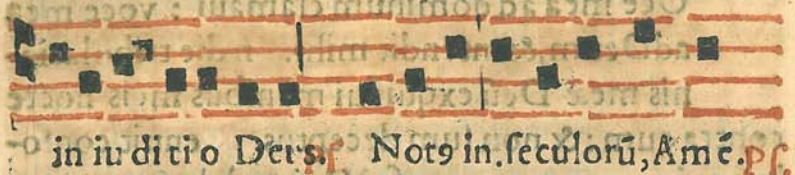 in iu di ti o Ders. Ps. Not9 in. seculorū, Amē. Ps.